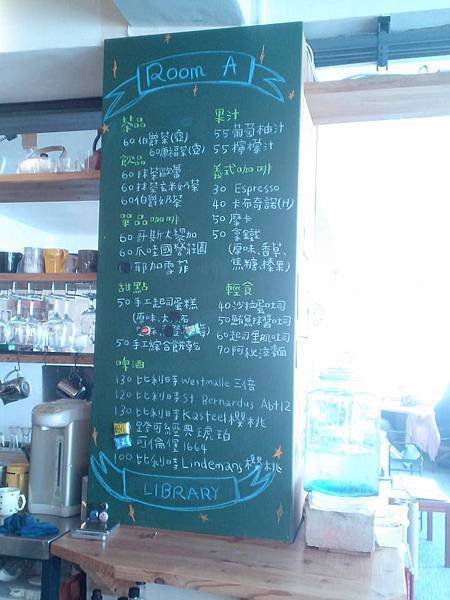 Room A
茶品
60 伯爵茶(壺)
60 康福茶(壺)
飲品
60 抹茶歐蕾
60 抹茶玄米奶茶
60 伯爵奶茶
單品咖啡
60 哥斯大黎加
60 爪哇國營莊園
耶加雪菲
甜點
50 手工起司蛋糕
(原味、
50 手工綜合餅乾
果汁
55 葡萄柚汁
55 檸檬汁
義式咖啡
30 Espresso
40 卡布奇諾(H)
50 摩卡
50 拿鐵
(原味、香草、
焦糖、榛果)
輕食
40 沙拉蛋吐司
50 鮪魚抹醬吐司
60 起司熏肌吐司
70 阿秋涼麵
啤酒
130 比利時 Westmalle 三倍
120 比利時 St Bernardus Abt 12
130 比利時 Kasteel 櫻桃
路可經典琥珀
可倫堡 1664
100 比利時 Lindemans 櫻桃
LIBRARY